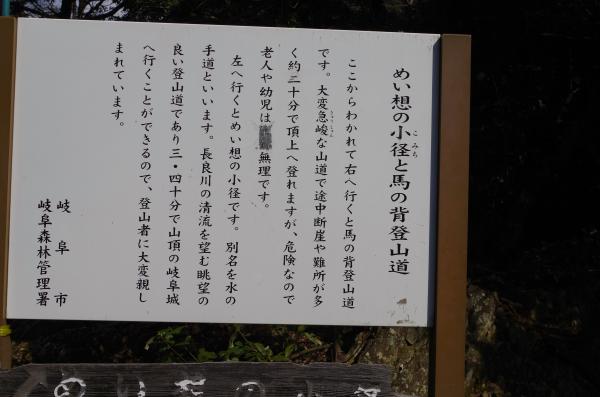 めい想の小径と馬の背登山道
こみち
ここからわかれて右へ行くと馬の背登山道
です。大変急峻な山道で途中断崖や難所が多
く約二十分で頂上へ登れますが、危険なので
老人や幼児は無理です。
左へ行くとめい想の小径です。別名を水の
手道といいます。長良川の清流を望む眺望の
良い登山道であり三・四十分で山頂の岐阜城
へ行くことができるので、登山者に大変親し
まれています。
岐阜市
岐阜森林管理署